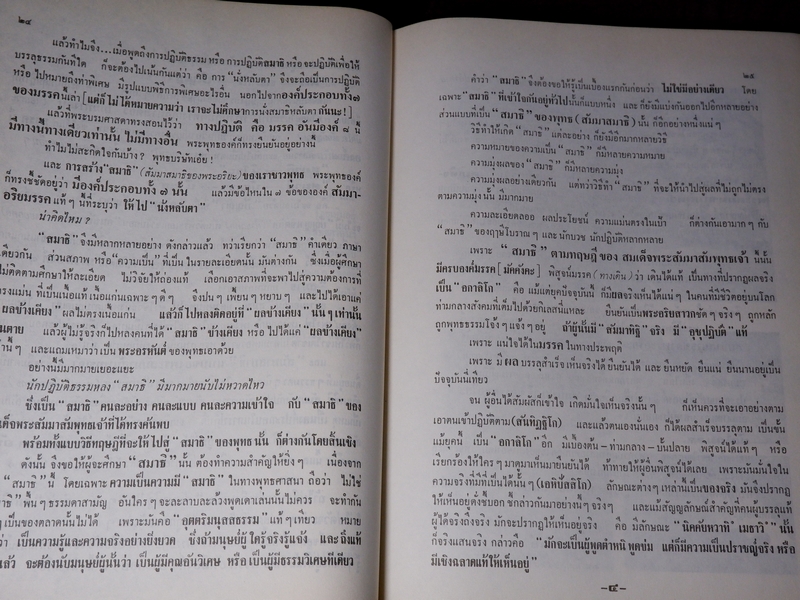 ๒๔
แล้วทำไมจึง...เมื่อพูดถึงการปฏิบัติธรรม หรือ การปฏิบัติสมาธิ หรือ จะปฏิบัติเพื่อให้
บรรลุธรรมกันทีใด ก็จะต้องไปเน้นกันแต่ว่า คือ การ "นั่งหลับตา" จึงจะถือเป็นการปฏิบัติ
หรือ ไปหมายถึงท่าพิเศษ มีรูปแบบพิธีการพิเศษอะไรอื่น นอกไปจากองค์ประกอบทั้ง ๗
ของมรรคนี้เล่า [แต่ก็ไม่ได้หมายความว่า เราจะไม่ศึกษาการนั่งสมาธิหลับตากันนะ!]
แล้วที่พระบรมศาสดาทรงสอนไว้ว่า ทางปฏิบัติ คือ มรรค อันมีองค์ ๘ นี้
มีทางนี้ทางเดียวเท่านั้น ไม่มีทางอื่น พระพุทธองค์ก็ทรงยืนยันอยู่อย่างนี้
ทำไมไม่สะกิดใจกันบ้าง? พุทธบริษัทเอ๋ย!
และ การสร้าง "สมาธิ" (สัมมาสมาธิของพระอริยะ) ของเราชาวพุทธ พระพุทธองค์
ก็ทรงชี้ชัดอยู่ว่า มีองค์ประกอบทั้ง ๗ นั้น แล้วมีข้อไหนใน ๗ ข้อขององค์ สัมมา-
อริยมรรค แท้ ๆ นี้ที่ระบุว่า ให้ไป "นั่งหลับตา"
น่าคิดไหม?
"สมาธิ" จึงมีหลากหลายอย่าง ดังกล่าวแล้ว ทว่าเรียกว่า "สมาธิ" คำเดียว ภาษา
เดียวกัน ส่วนสภาพ หรือ "ความเป็น" ที่เป็น ในรายละเอียดนั้น มันต่างกัน ซึ่งเมื่อผู้ศึกษา
ไม่ติดตามศึกษาให้ละเอียด ไม่วิจัยให้ถ่องแท้ เลือกเอาสภาพที่จะพาไปสู่ความต้องการที่
ตรงแม่น ที่เป็นเนื้อแท้ เนื้อแก่นเฉพาะ ๆ ดี ๆ จึงปน ๆ เพี้ยน ๆ หยาบ ๆ และไปได้เอาแค่
ผลข้างเคียง" ผลไม่ตรงเนื้อแก่น แล้วก็ไปหลงติดอยู่ที่ "ผลข้างเคียง" นั้น ๆ เท่านั้น
แล้วผู้ไม่รู้จริงก็ไปหลงคนที่ได้ "สมาธิ" ข้างเคียง หรือ ไปได้แค่ "ผลข้างเคียง"
และแถมเหมาว่าเป็น พระอรหันต์ ของพุทธเอาด้วย
อย่างนี้มีมากมายเยอะแยะ
นักปฏิบัติธรรมหลง "สมาธิ" มีมากมายนับไม่หวาดไหว
ซึ่งเป็น "สมาธิ" คนละอย่าง คนละแบบ คนละความเข้าใจ กับ "สมาธิ" ของ
สมเด็จพระสัมมาสัมพุทธเจ้าที่ได้ทรงค้นพบ
พร้อมทั้งแบบวิธีทฤษฎีที่จะให้ไปสู่ "สมาธิ" ของพุทธ นั้น ก็ต่างกันโดยสิ้นเชิง
ดังนั้น จึงขอให้ผู้จะศึกษา "สมาธิ" นั้น ต้องทำความสำคัญให้ยิ่ง ๆ เนื่องจาก
"สมาธิ" นี้ โดยเฉพาะ ความเป็นความมี "สมาธิ" ในทางพุทธศาสนา ถือว่า ไม่ใช่
พื้น ๆ ธรรมดาสามัญ อันใคร ๆ จะละลาบละล้วงพูดเดาเล่นนั้นไม่ควร จะทำกัน
เป็นของตลาดนั้นไม่ได้ เพราะมันคือ "อุตตริมนุสสธรรม" แท้ ๆ เทียว หมาย
ว่า เป็นความรู้และความจริงอย่างยิ่งยวด ซึ่งถ้ามนุษย์ผู้ใดรู้จริงรู้แจ้ง และถึงแท้
แล้ว จะต้องนับมนุษย์ผู้นั้นว่า เป็นผู้มีคุณอันวิเศษ หรือ เป็นผู้มีธรรมวิเศษทีเดียว
๒๕
คำว่า "สมาธิ" จึงต้องขอให้รู้เป็นเบื้องแรกกันก่อนว่า ไม่ใช่มีอย่างเดียว โดย
เฉพาะ "สมาธิ" ที่เข้าใจกันอยู่ทั่วไปนั้นก็แบบหนึ่ง และ ก็ยังมีแบ่งกันออกไปอีกหลายอย่าง
ส่วนแบบที่เป็น "สมาธิ" ของพุทธ (สัมมาสมาธิ) นั้น ก็อีกอย่างหนึ่งแน่ ๆ
วิธีทำให้เกิด "สมาธิ" แต่ละอย่าง ก็ยังมีอีกมากหลายวิธี
ความหมายของความเป็น "สมาธิ" ก็มีหลายความหมาย
ความมุ่งผลของ "สมาธิ" ก็มีหลายความมุ่ง
ความมุ่งผลอย่างเดียวกัน แต่ทว่าวิธีทำ "สมาธิ" ที่จะให้นำไปสู่ผลที่ไม่ถูกไม่ตรง
ตามความมุ่ง นั้น มีมากมาย
ความละเอียดลออ ผลประโยชน์ ความแม่นตรงในเป้า ก็ต่างกันเอามาก ๆ กับ
"สมาธิ" ของฤาษีโบราณ ๆ และ นักบวช นักปฏิบัติหลากหลาย
เพราะ "สมาธิ" ตามทฤษฎีของ สมเด็จพระสัมมาสัมพุทธเจ้า นี้นั้น
มีครบองค์มรรค [มัคค์คะ] พิสูจน์มรรค (ทางเดิน) ว่า เดินได้แท้ เป็นทางที่ปรากฏผลจริง
เป็น "อกาลิโก" คือ แม้แต่ยุคปัจจุบันนี้ ก็มีผลจริงเห็นได้แน่ ๆ ในคนที่มีชีวิตอยู่บนโลก
ท่ามกลางสังคมที่เต็มไปด้วยกิเลสนี่แหละ ยืนยันเป็นพระอริยสาวกชัด ๆ จริง ๆ ถูกหลัก
ถูกพุทธธรรมโจ้ง ๆ แจ้ง ๆ อยู่ ถ้าผู้นั้นมี "สัมมาทิฐิ" จริง มี "อุชุปฏิบัติ" แท้
เพราะ แน่ใจได้ในมรรค ในทางประพฤติ
เพราะ มีผล บรรลุสำเร็จเห็นจริงได้ ยืนยันได้ และ ยืนหยัด ยืนแน่ ยืนนานอยู่เป็น
ปัจจุบันนี่เที่ยว
จน ผู้อื่นได้สัมผัสก็เข้าใจ เกิดมั่นใจเห็นจริงนั้น ๆ ก็เห็นควรที่จะเอาอย่างตาม
เอาตนเข้าปฏิบัติตาม (สันทิฏฐิโก) และแล้วตนเองนั่นเอง ก็ได้ผลสำเร็จบรรลุตาม เป็นขั้น
แม้ยุคนี้ เป็น "อกาลิโก" อีก มีเบื้องต้น-ท่ามกลาง-บั้นปลาย พิสูจน์ได้แท้ ๆ หรือ
เรียกร้องให้ใคร ๆ มาดูมาเห็นมายืนยันได้ ท้าทายให้ผู้อื่นพิสูจน์ได้เลย เพราะมันมั่นใจใน
ความจริงที่มีที่เป็นนั้นได้ (เอหิปัสสิโก) ลักษณะต่าง ๆ เหล่านี้เป็นของจริง มันจึงปรากฏ
ให้เห็นอยู่ดั่งชี้บอก ชี้กล่าวกันมาอย่างนั้น ๆ จริง ๆ และแม้สัญลักษณ์สำคัญที่คนผู้บรรลุแท้
ผู้ได้จริงถึงจริง มักจะปรากฏให้เห็นอยู่จริง คือ มีลักษณะ "นิคคัยหวาที เมธาวี" นั้น
ก็จริงแสนจริง กล่าวคือ "มักจะเป็นผู้พูดตำหนิ พูดข่ม แต่ก็มีความเป็นปราชญ์จริง หรือ
มีเชิงฉลาดแท้ให้เห็นอยู่"